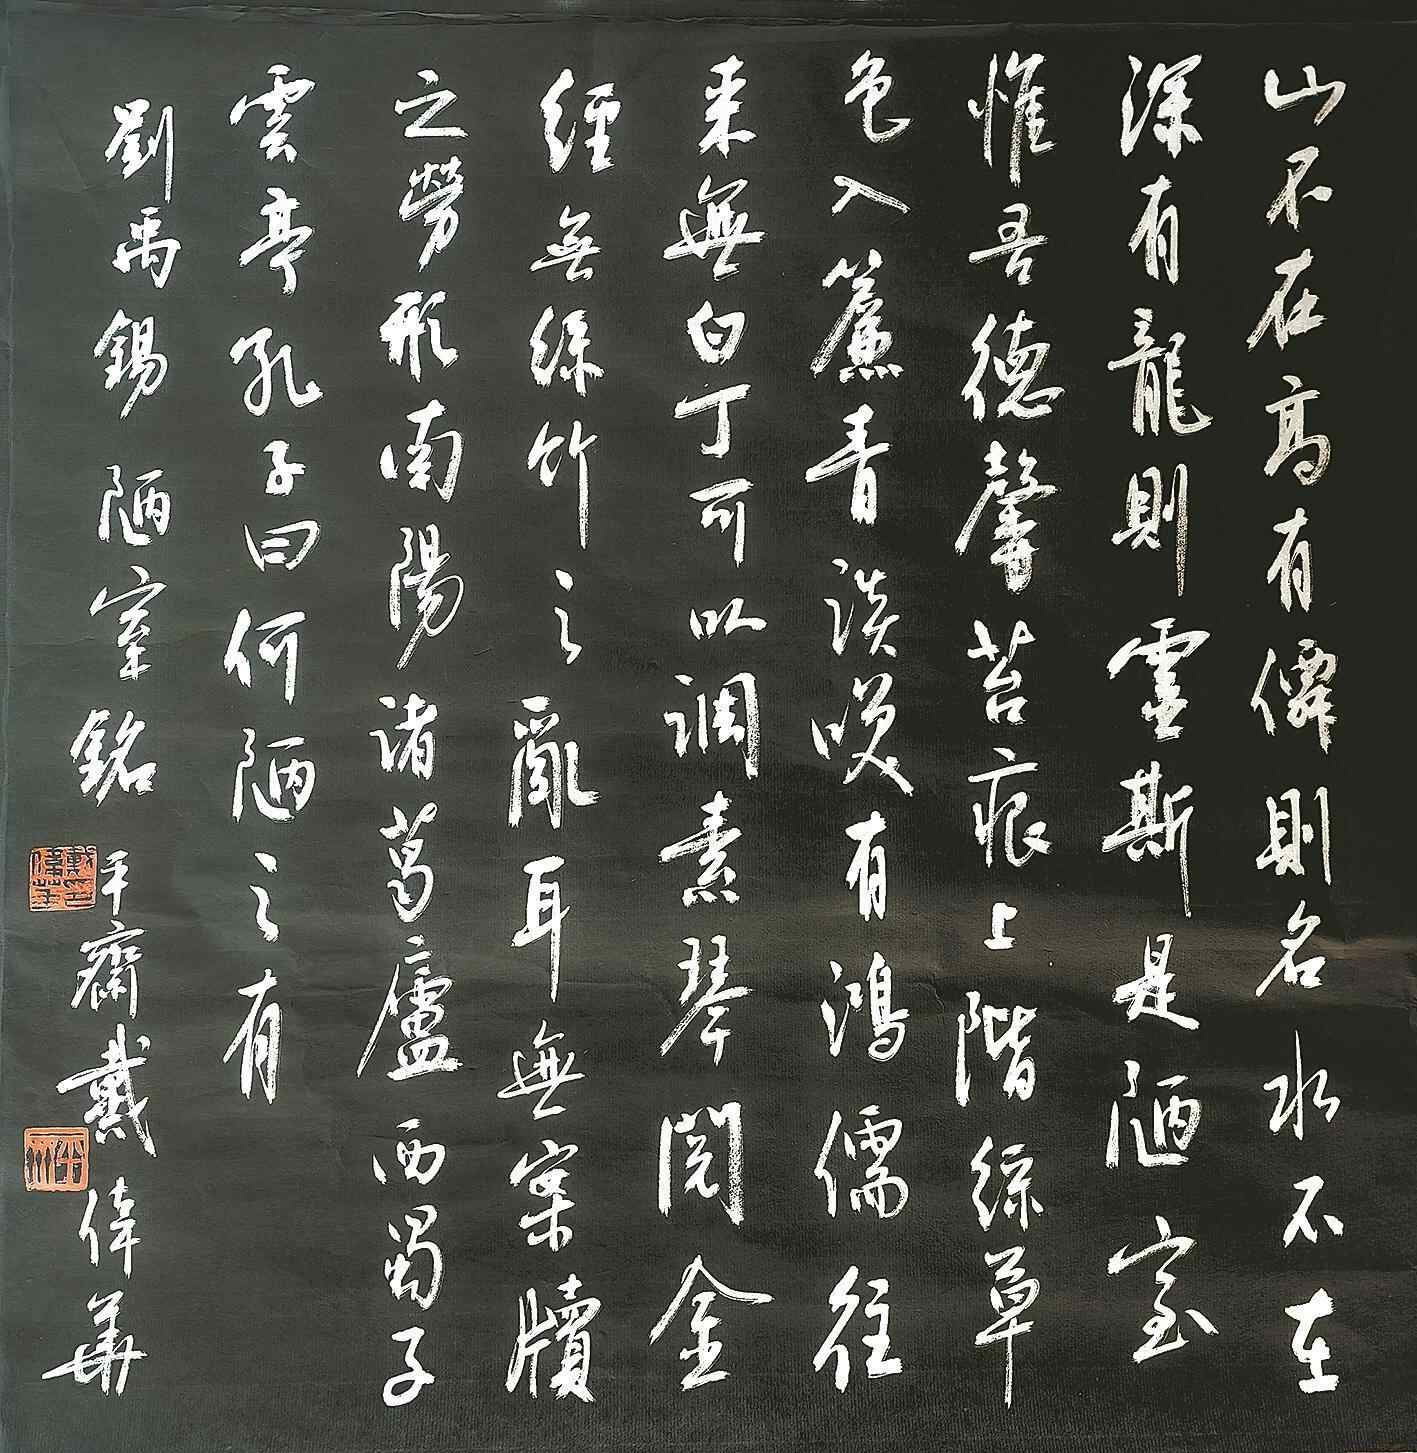 山不在高有僊則名水不在
深有龍則靈斯是陋室
惟吾德馨苔痕上階綠草
色入簾青談咲有鴻儒往
来無白丁可以調素琴閱金
經無絲竹之亂耳無案牘
之勞形南陽諸葛廬西蜀子
雲亭孔子曰何陋之有
劉禹錫陋室銘 平齋戴偉華
戴偉華印